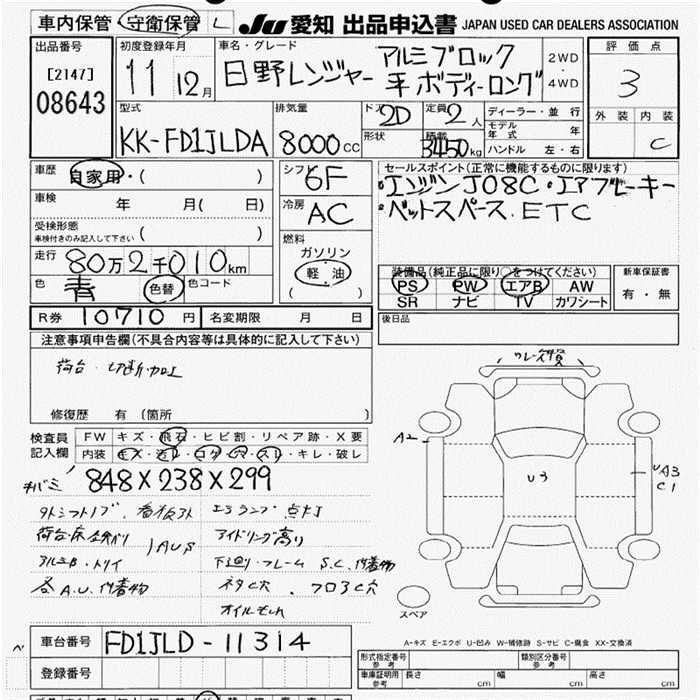 車内保管・守衛保管 L
JU 愛知 出品申込書 JAPAN USED CAR DEALERS ASSOCIATION
出品番号
[2147]
08643
初度登録年月
11 12月
車名・グレード
日野レンジャー
アルミブロック
平ボディーロング
2WD
・
4WD
評価点
3
外装 内装
C
型式
KK-FD1JLDA
排気量
8000cc
ドア 2D
形状
定員 2人
積載
3450kg
ディーラー・並行
モデル年式 年
ハンドル 左・右
車歴
自家用・( )
車検
年 月( 日)
受検形態
車検付きのみ記入して下さい ( )
走行 80万2千010km
色 青 色替 色コード
シフト
6F
冷房
AC
燃料
ガソリン
軽・油
( )
セールスポイント(正常に機能するものに限ります)
・エンジンJ08C・エアブレーキー
・ベットスペース.ETC
装備品(純正品に限り○をつけてください)
PS PW エアB AW
SR ナビ TV カワシート
新車保証書
有・無
R券 10710円 名変期限 月 日
後日品
注意事項申告欄(不具合内容等は具体的に記入して下さい)
荷台・切断・加工
修復歴 有(箇所 )
検査員
記入欄
FW キズ・飛石・ヒビ割・リペア跡・X要
内装 キズ・汚レ・コゲ・穴・スレ・キレ・破レ
848×238×299
エコランプ点灯
アイドリング高り
下廻り・フレーム S.C.付着物
オイルもれ
A2
U3
UA3
C1
スペア
A-キズ E-エクボ U-凹み W-補修跡 S-サビ C-腐食 XX-交換済
車台番号 FD1JLD-11314
登録番号
形式指定番号
参考
類別区分番号
参考
車庫証明用
参考
長さ cm 幅 cm 高さ cm